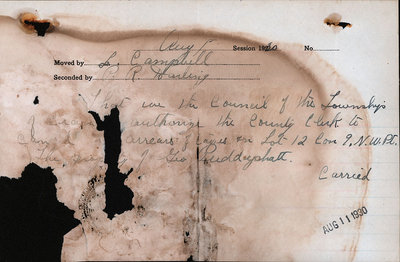 Aug Session 1930 No.
Moved by L. Campbell
Seconded by R.
That we the Council of the Township
authorize the County Clerk to
arrears of taxes on Lot 12 Con 9. N.W.Pt.
The of Geo Puddephatt.
Carried
AUG 11 1930